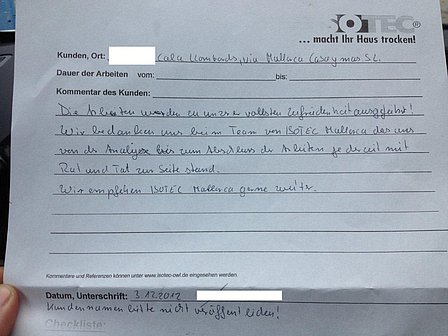 ISOTEC®
... macht Ihr Haus trocken!
Kunden, Ort: Cala Llombards, via Mallorca Casa y mas S.L.
Dauer der Arbeiten vom: bis:
Kommentar des Kunden:
Die Arbeiten wurden zu unserer vollsten Zufriedenheit ausgeführt!
Wir bedanken uns beim Team von ISOTEC Mallorca das uns
von der Analyse bis zum Abschluss der Arbeiten jederzeit mit
Rat und Tat zur Seite stand.
Wir empfehlen ISOTEC Mallorca gerne weiter.
Kommentare und Referenzen können unter www.isotec-owl.de eingesehen werden.
Datum, Unterschrift: 3.12.2012
Kundennamen bitte nicht veröffentlichen!
Checkliste: